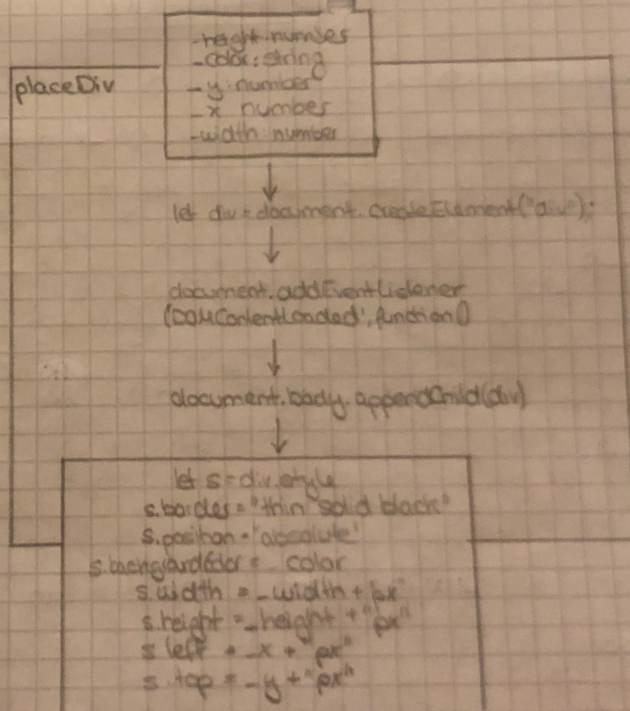 placeDiv
_height: number
_color: string
_y: number
_x number
_width: number
let div = document.createElement("div");
document.addEventListener
('DOMContentLoaded', function()
document.body.appendChild(div)
let s = div.style
s.border = "thin solid black"
s.position = 'absolute'
s.backgroundColor = _color
s.width = _width + "px"
s.height = _height + "px"
s.left = _x + "px"
s.top = _y + "px"